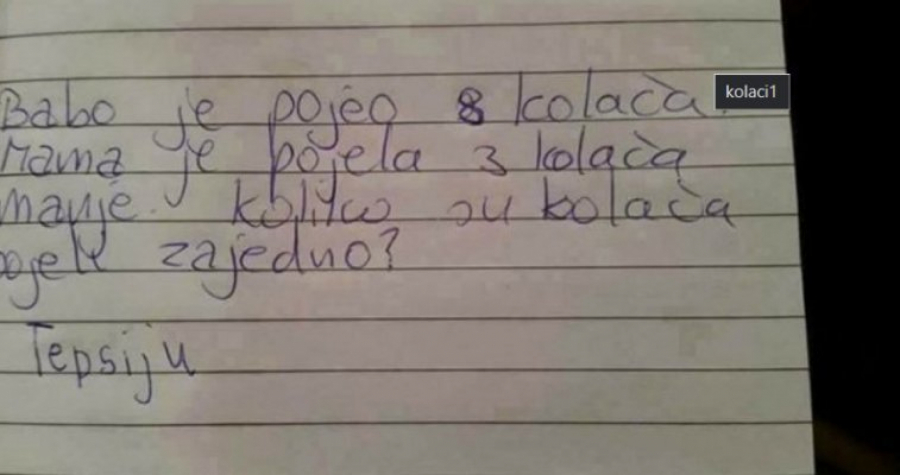 Babo je pojeo 8 kolača.
kolaci1
Mama je pojela 3 kolača
manje. koliko su kolača
pojeli zajedno?
Tepsiju